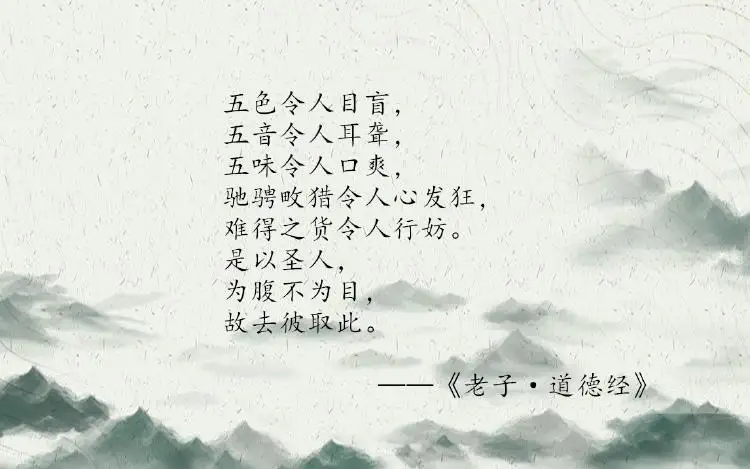 五色令人目盲，
五音令人耳聋，
五味令人口爽，
驰骋畋猎令人心发狂，
难得之货令人行妨。
是以圣人，
为腹不为目，
故去彼取此。
——《老子·道德经》